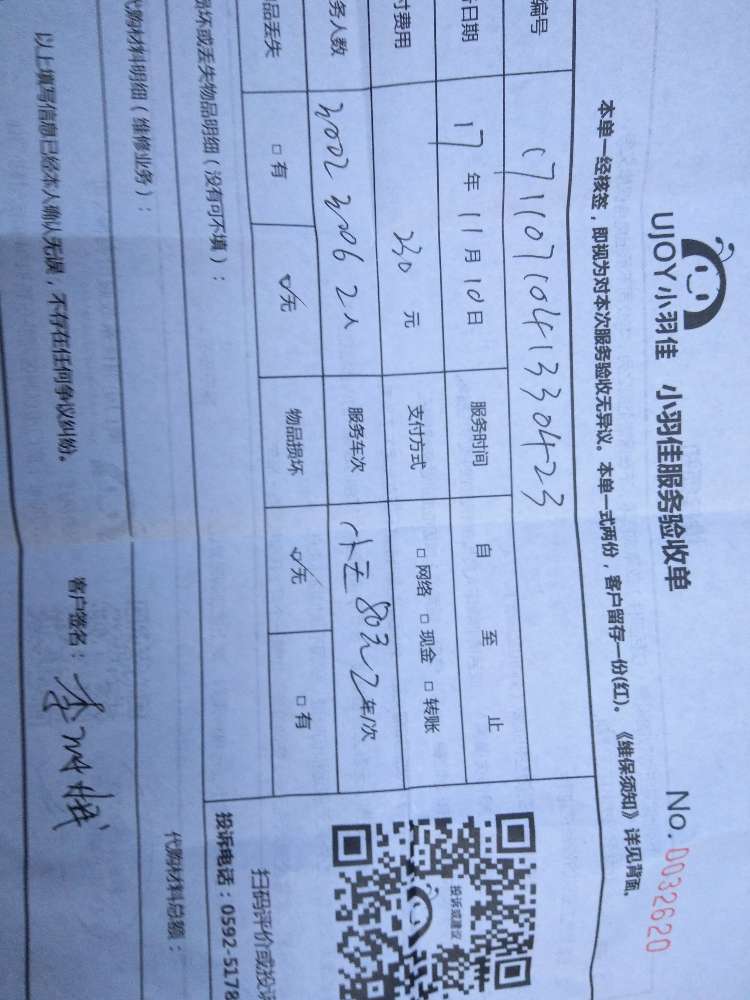 UJOY小羽佳 小羽佳服务验收单 No. 0032620
本单一经核签，即视为对本次服务验收无异议。本单一式两份，客户留存一份(红)。《维保须知》详见背面。
编号 1711071041330423
日期 17年11月10日 服务时间 自 至 止
付费用 230元 支付方式 □网络 □现金 □转账
务人数 3002 3006 2人 服务车次 2车/次
品丢失 □有 ☑无 物品损坏 ☑无 □有
损坏或丢失物品明细（没有可不填）：
代购材料明细（维修业务）：
代购材料总额：
以上填写信息已经本人确认无误，不存在任何争议纠纷。 客户签名：李
投诉或建议
扫码评价或投
投诉电话：0592-5178